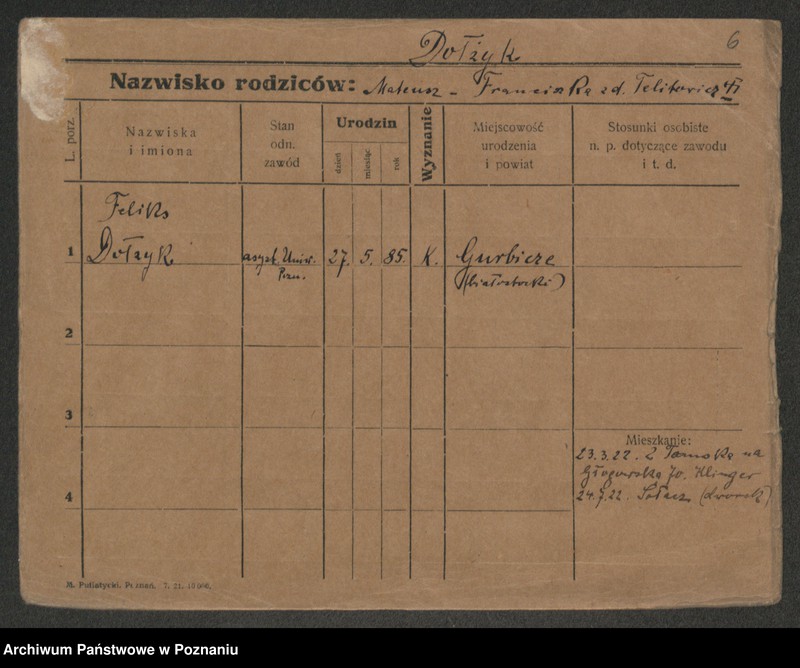 6
Dołżyk
Nazwisko rodziców: Mateusz – Franciszka zd.
L. porz.
Nazwiska
i imiona
Stan
odn.
zawód
Urodzin
dzień
miesiąc
rok
Wyznanie
Miejscowość
urodzenia
i powiat
Stosunki osobiste
n. p. dotyczące zawodu
i t. d.
Feliks
1 Dołżyk asyst. Uniw. 27. 5. 85. K. Gurbicze
Pozn. (białostocki)
2
3
Mieszkanie:
23.3.22. z Tamską na
Głogowska 70. Klinger
4 24.7.22. Sołacz (dworek)
M. Putiatycki, Poznań. 7. 21. 10 000.
Archiwum Państwowe w Poznaniu